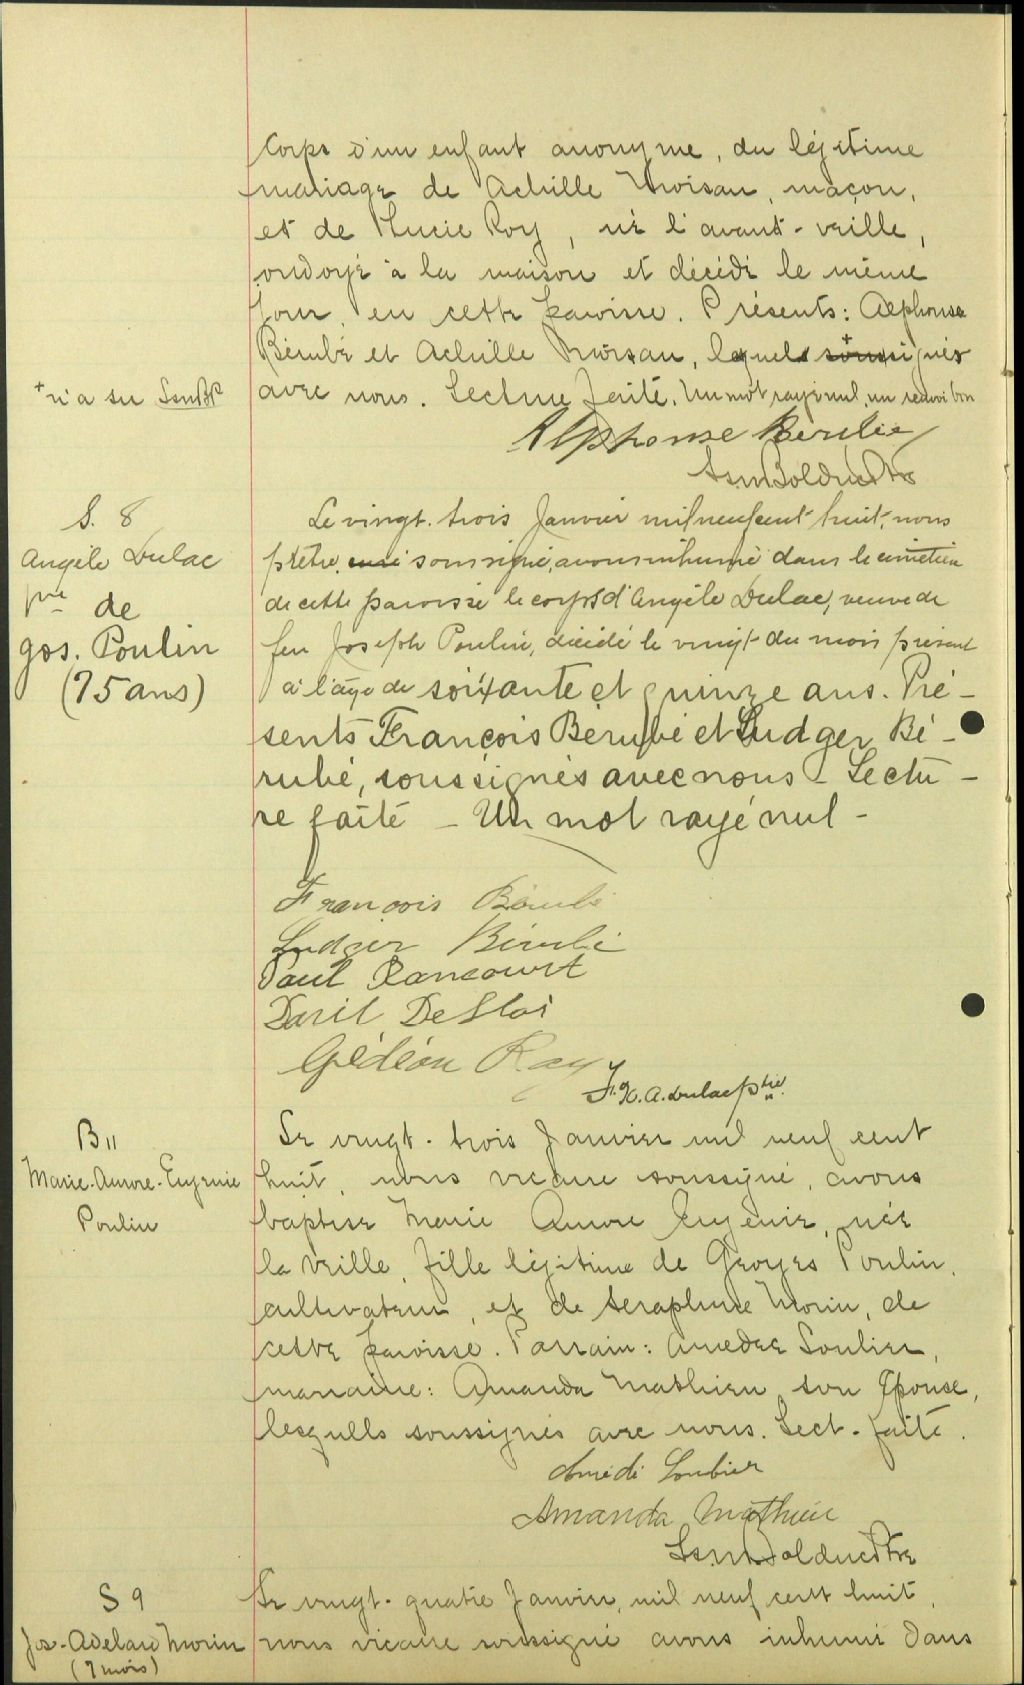 Corps d'un enfant anonyme, du légitime
mariage de Achille Moisan, maçon,
et de Lucie Roy, né l'avant-veille,
ondoyé à la maison et décédé le même
jour, en cette paroisse. Présents: Alphonse
Bérubé et Achille Moisan, lequel + soussignés
+ n'a su
avec nous. Lecture faite. Un mot rayé nul, un renvoi bon
Alphonse Bérubé
Bolduc Ptre
S. 8
Angèle Dulac
de
Jos. Poulin
(75 ans)
Le vingt-trois Janvier mil neuf cent huit, nous
prêtre curé soussigné, avons inhumé dans le cimetière
de cette paroisse le corps d'Angèle Dulac, veuve de
feu Joseph Poulin, décédé le vingt du mois présent
à l'âge de soixante et quinze ans. Pré-
sents François Bérubé et Ludger Bé-
rubé, soussignés avec nous - Lectu-
re faite - Un mot rayé nul -
François Bérubé
Ludger Bérubé
Paul Rancourt
Gédéon Roy
J. A. Dulac ptre
B 11
Marie-Aurore-Eugénie
Poulin
Le vingt-trois Janvier mil neuf cent
huit, nous vicaire soussigné, avons
baptisé Marie Aurore Eugénie, née
la veille, fille légitime de Georges Poulin,
cultivateur, et de Séraphine Morin, de
cette paroisse. Parrain: Amédée Loubier,
marraine: Amanda Mathieu son Épouse,
lesquels soussignés avec nous. Lect. faite.
Amédé Loubier
Amanda Mathieu
Bolduc Ptre
S 9
Jos-Adelard Morin
(7 mois)
Le vingt-quatre Janvier, mil neuf cent huit,
nous vicaire soussigné avons inhumé dans